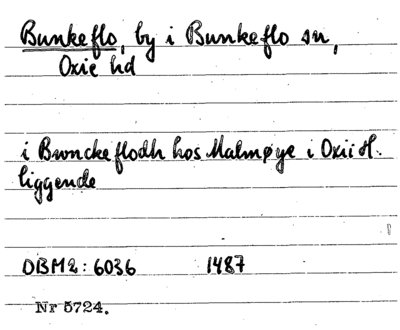 Bunkeflo, by i Bunkeflo sn,
Oxie hd
i Bwnckeflodh hos Malmøye i Oxii H.
liggende
DBM2: 6036 1487
Nr 5724.